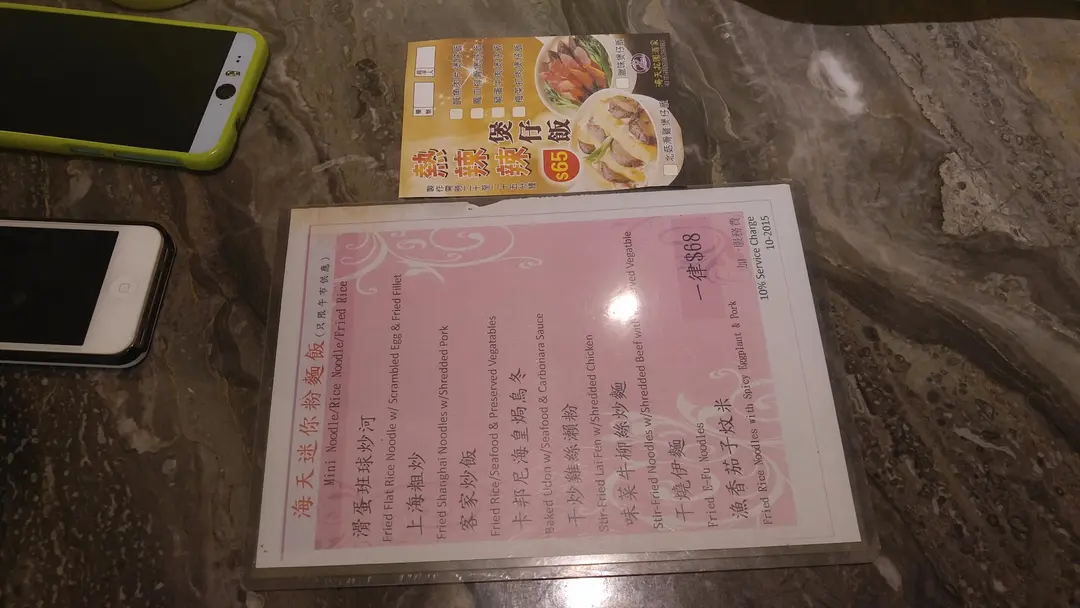 海天迷你粉麵飯(只限午市供應)
Mini Noodle/Rice Noodle/Fried Rice
滑蛋班球炒河
Fried Flat Rice Noodle w/ Scrambled Egg & Fried Fillet
上海粗炒
Fried Shanghai Noodles w/Shredded Pork
客家炒飯
Fried Rice/Seafood & Preserved Vegatables
卡邦尼海皇焗烏冬
Baked Udon w/Seafood & Carbonara Sauce
干炒雞絲瀨粉
Stir-Fried Lai Fen w/Shredded Chicken
味菜牛柳絲炒麵
Stir-Fried Noodles w/Shredded Beef with Vegatble
干燒伊麵
Fried E-Fu Noodles
漁香茄子炆米
Fried Rice Noodles With Spicy Eggplant & Pork
一律$68
加一服務費
10% Service Charge
10-2015
熱辣辣煲仔飯
$65
製作需時二十至二十五分鐘
臘味煲仔飯
北菇滑雞煲仔飯
海天花園酒家